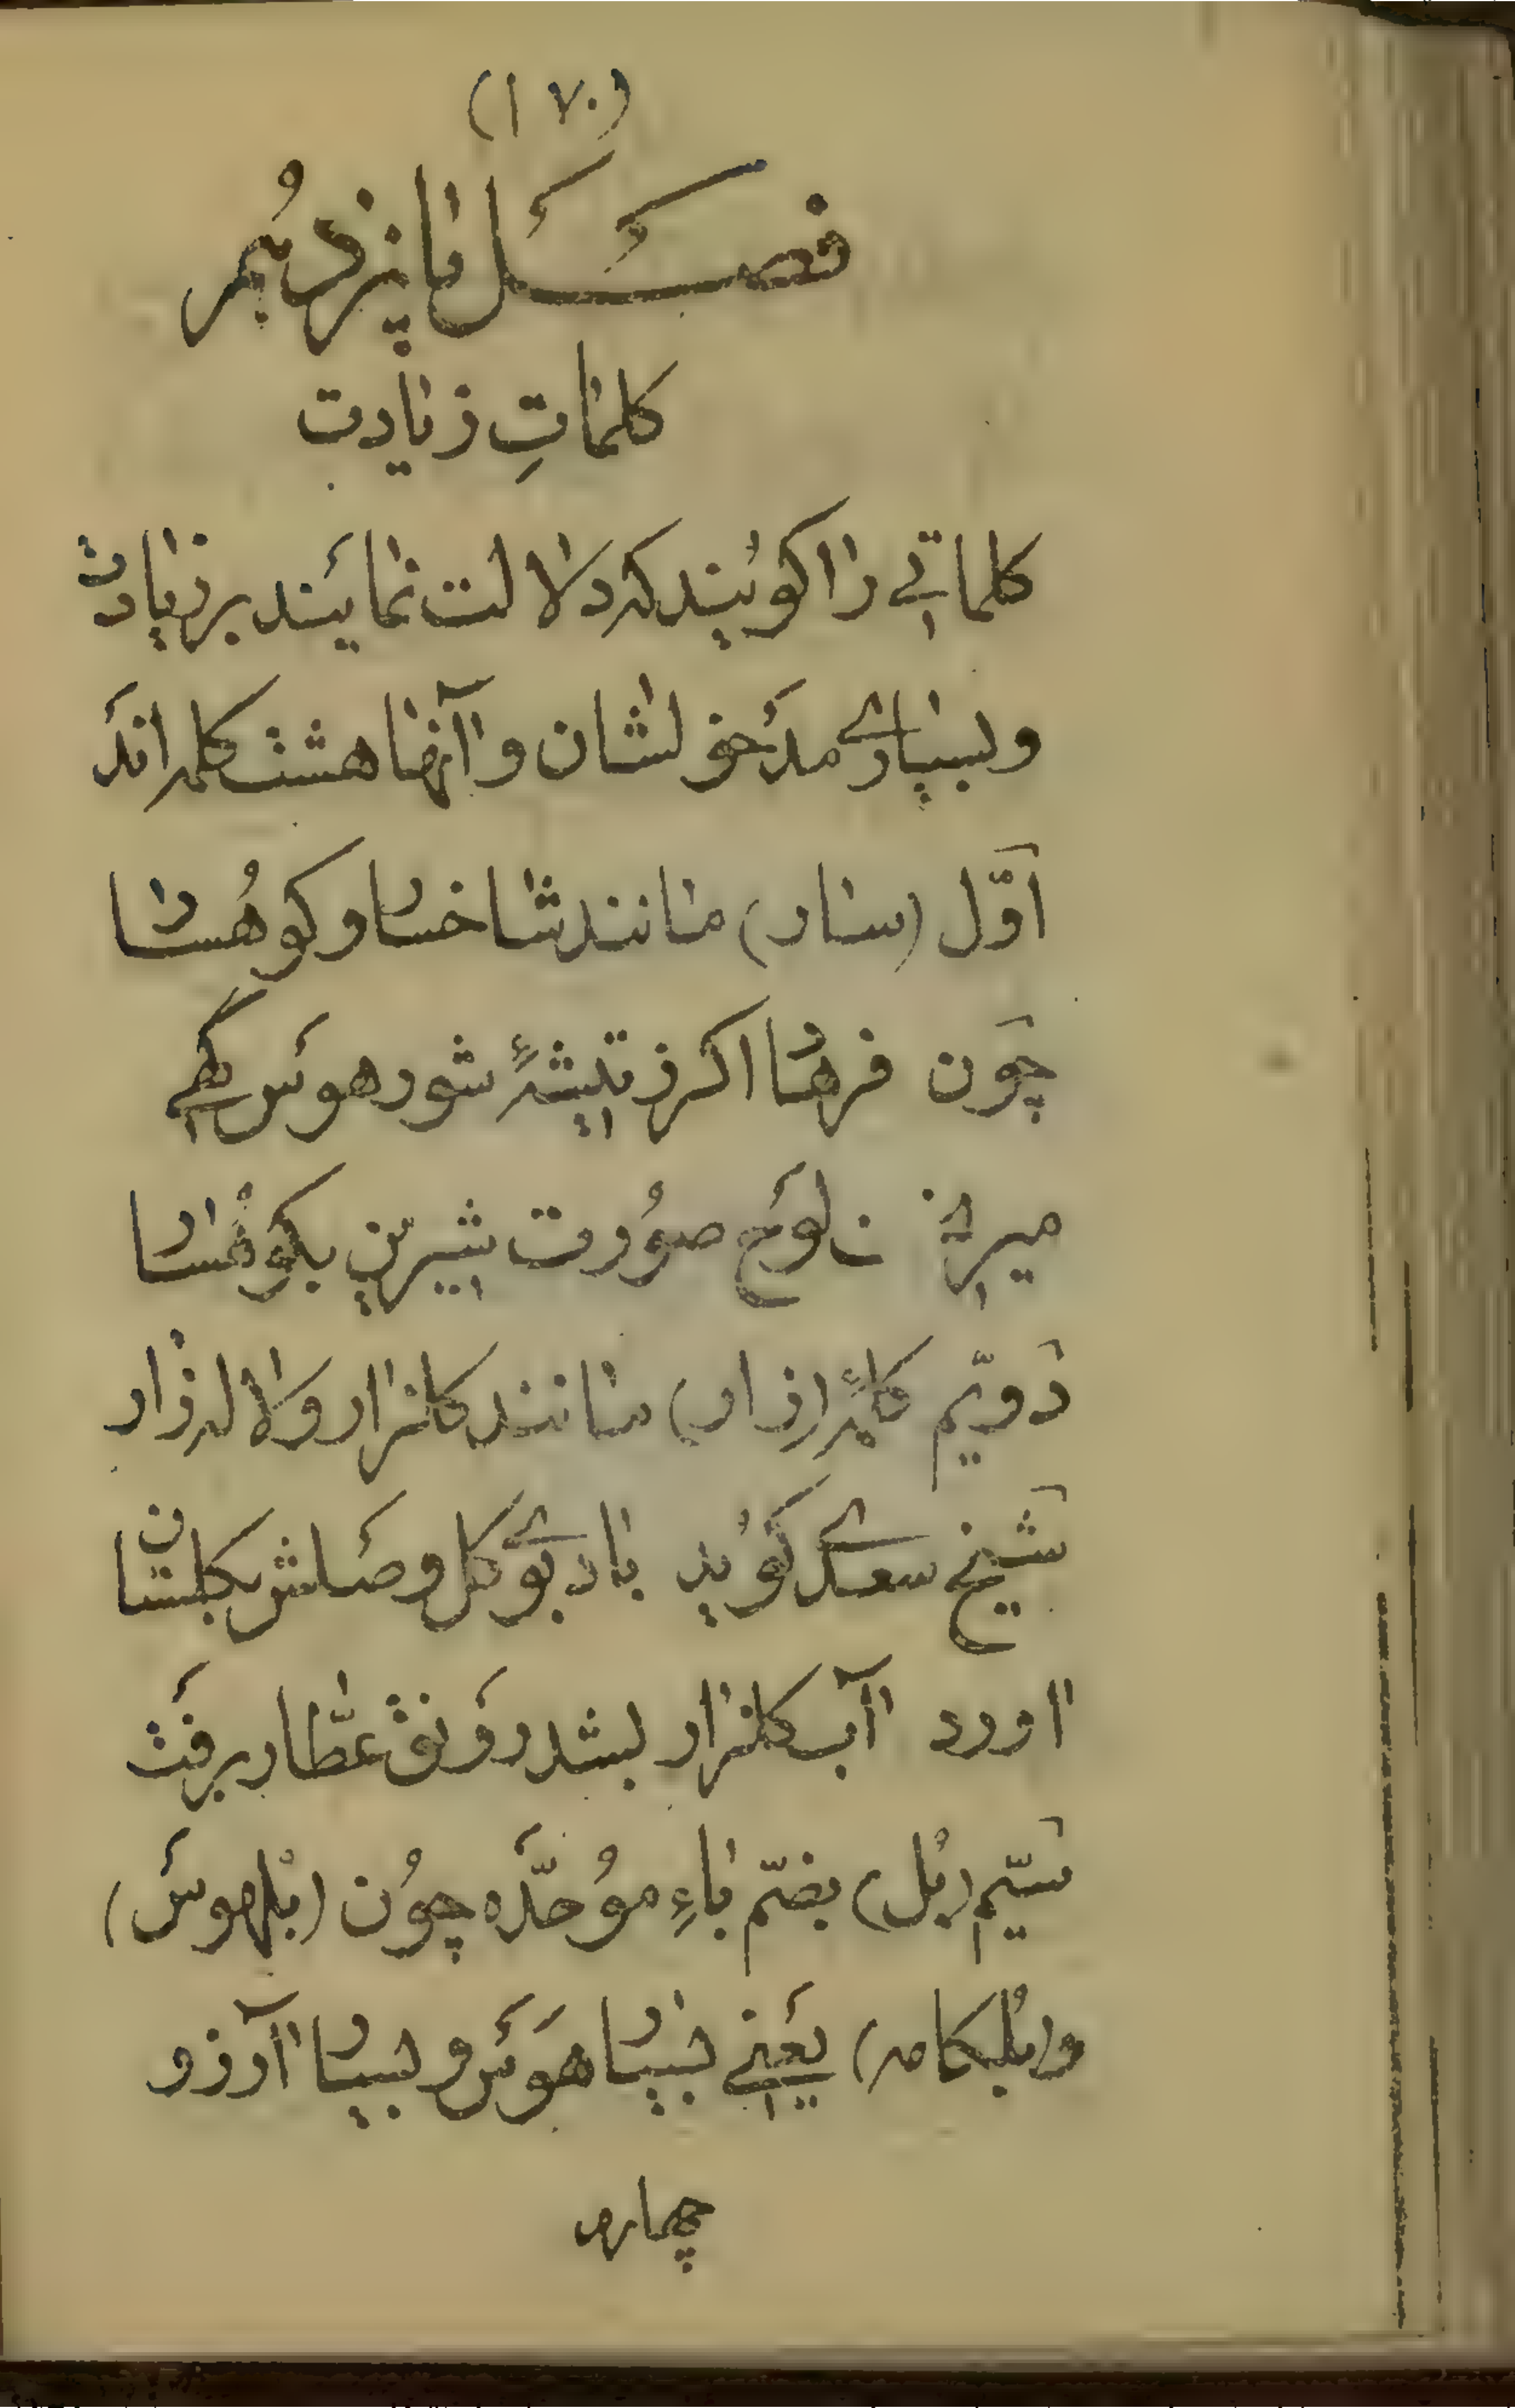 (۱۷۰)
فصل پانزدهُم
کلماتِ زیادت
کلماتی را کویند که دلالت نمایند بر زیادت
و بسیاری مدخولشان و آنها هشت کلمه اند
اوّل (سار) مانند شاخسار و کوهسار
چون فرهاد اکر ز تیشهٔ شور هوس کهی
میر لوح صورت شیرین بکوهسار
دویّم کلمهٔ (زار) مانند کلزار و لاله زار
شیخ سعدی کوید باد بوی کل وصلش بکلستان
اورد آب کلزار بشد رونق عطّار برفت
سیّم (بُل) بضمّ باءِ موُحدّه چوُن (بُلهوس)
و (بُلکامه) یعنی بسیار هوس و بسیار آرزو
چهارم